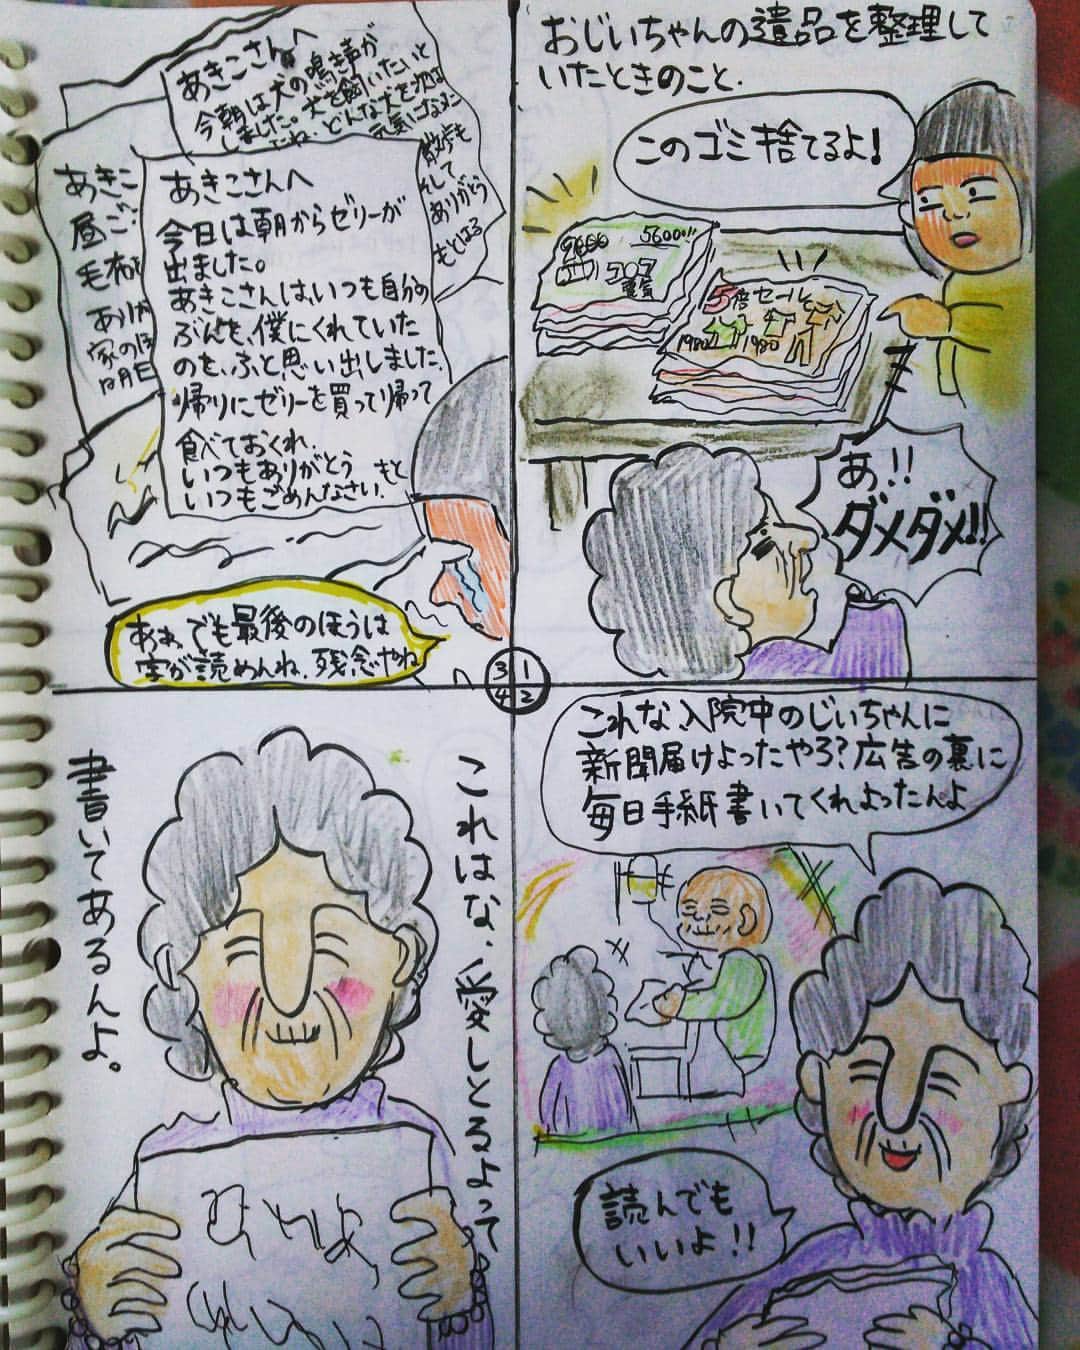 おじいちゃんの遺品を整理して
いたときのこと.
このゴミ捨てるよ!
5600!!
電気
5倍セール
1980
1980
あ!!
ダメダメ!!
1
2
3
4
これな、入院中のじいちゃんに
新聞届けよったやろ?広告の裏に
毎日手紙書いてくれよったんよ
読んでも
いいよ!!
あきこさんへ
今朝は犬の鳴き声が
しました。犬を飼いたいと
どんな犬を次は
元気に
散歩も
して
ありがとう
もとはる
あきこ
昼ご
毛布
あり
家のほ
明日
あきこさんへ
今日は朝からゼリーが
出ました。
あきこさんは、いつも自分の
ぶんを、僕にくれていた
のを、ふと思い出しました.
帰りにゼリーを買って帰って
食べておくれ.
いつもありがとう もと
いつもごめんなさい.
あぁ、でも最後のほうは
字が読めんね、残念やね
これはな、愛しとるよって
書いてあるんよ。